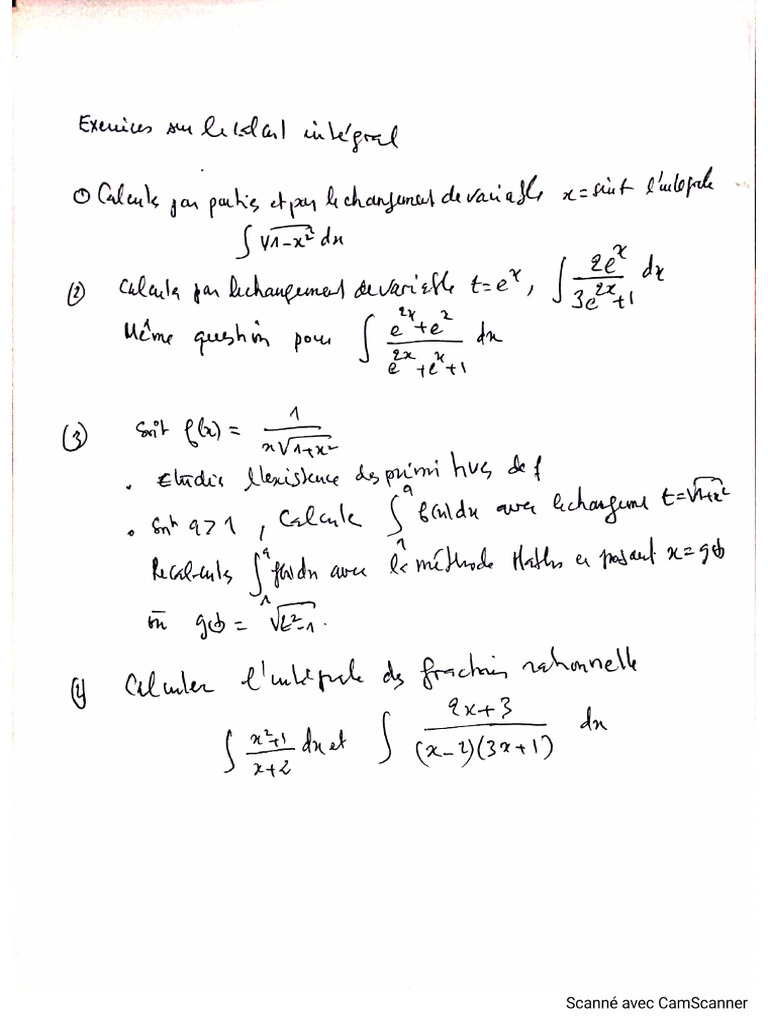 Exercices sur le calcul intégral
① Calculer par parties et par le changement de variable x = sint l'intégrale
∫ √1-x² dx
(2) Calculer par le changement de variable t = eˣ, ∫ 2eˣ / 3e²ˣ+1 dx
Même question pour ∫ e²ˣ+e² / e²ˣ+eˣ+1 dx
(3) Soit f(x) = 1 / x√1+x²
. Etudier l'existence des primitives de f
. Soit a>1, Calculer ∫₁ᵃ f(x)dx avec le changeme t=√1+x²
Recalculer ∫₁ᵃ f(x)dx avec la méthode Maths en posant x = g(t)
où g(t) = √t²-1.
(4) Calculer l'intégrale des fractions rationnelle
∫ x²+1 / x+2 dx et ∫ 2x+3 / (x-2)(3x+1) dx
Scanné avec CamScanner